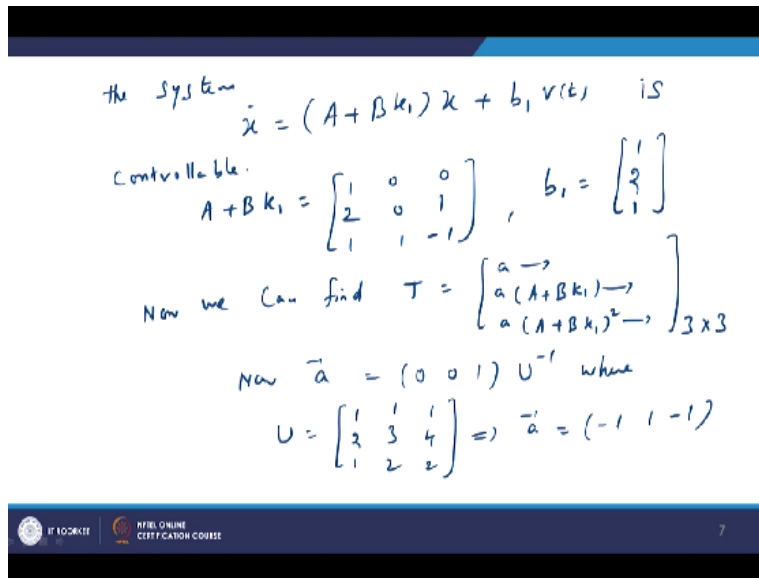 the system
ẋ = (A + B k₁) x + b₁ v(t) is
Controllable.
A + B k₁ = [1 0 0; 2 0 1; 1 1 -1], b₁ = [1; 2; 1]
Now we can find T = [a →; a (A + B k₁) →; a (A + B k₁)² →] 3×3
Now a⃗ = (0 0 1) U⁻¹ where
U = [1 1 1; 2 3 4; 1 2 2] ⇒ a⃗ = (-1 1 -1)
IT ROORKEE NPTEL ONLINE CERTIFICATION COURSE 7